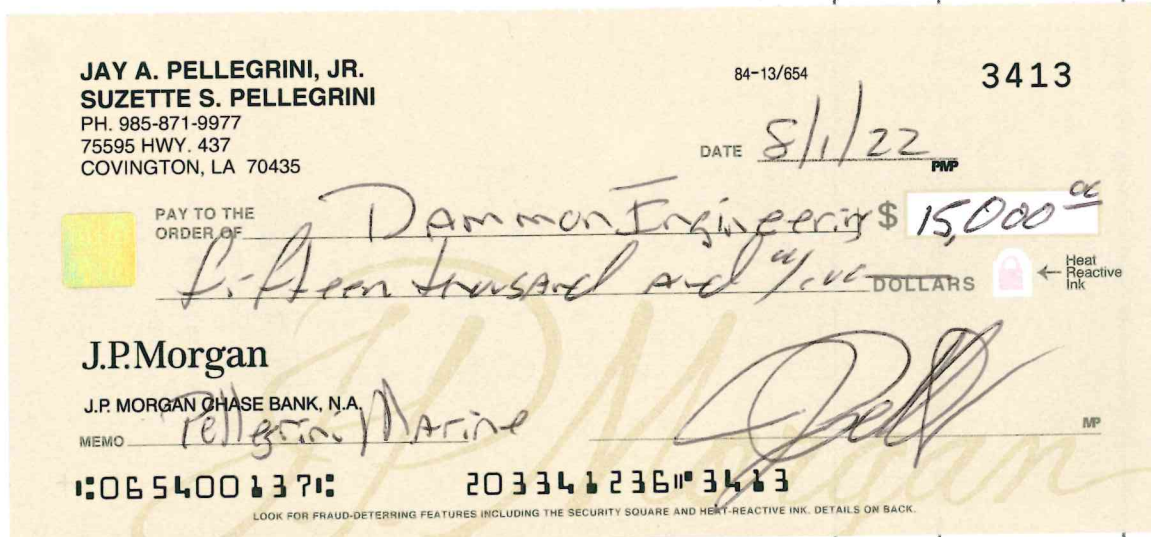 JAY A. PELLEGRINI, JR.
SUZETTE S. PELLEGRINI
PH. 985-871-9977
75595 HWY. 437
COVINGTON, LA 70435
84-13/654
3413
DATE 8/1/22
PMP
PAY TO THE
ORDER OF Dammon Engineering $ 15,000 00
fifteen thousand and 00/100 DOLLARS
Heat
Reactive
Ink
J.P.Morgan
J.P. MORGAN CHASE BANK, N.A.
MEMO Pellegrini Marine
MP
⑆065400137⑆ 203341236⑈3413
LOOK FOR FRAUD-DETERRING FEATURES INCLUDING THE SECURITY SQUARE AND HEAT-REACTIVE INK. DETAILS ON BACK.